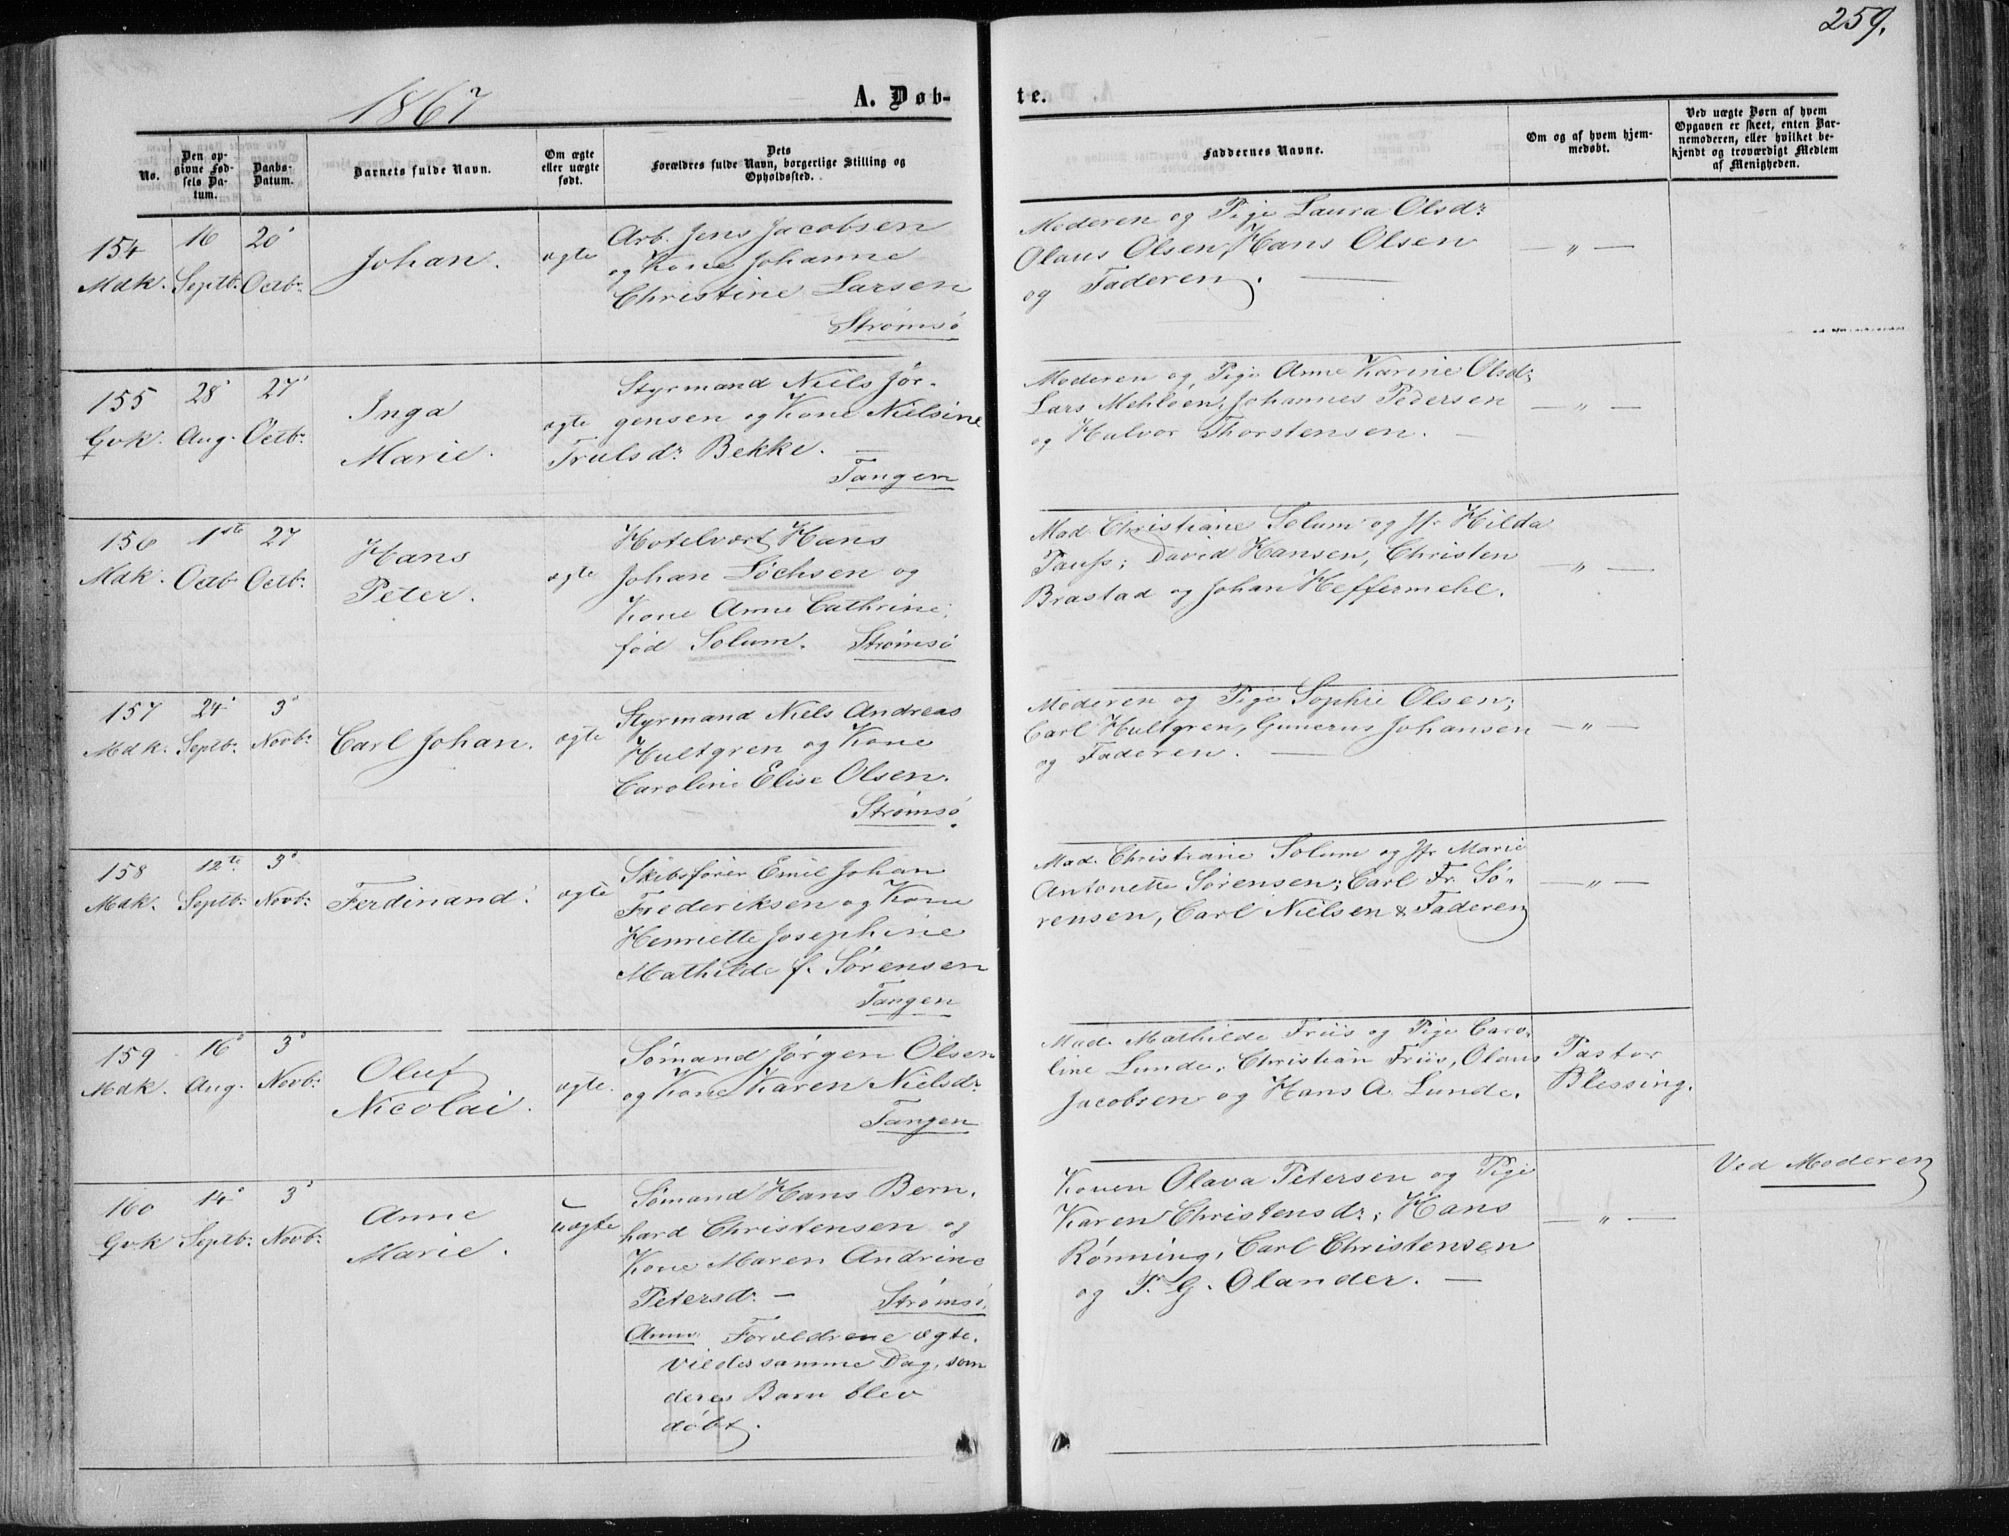 259.
1867
A. Døb-
te.
No.
Den op-
givne Fød-
sels Da-
tum.
Daabs-
Datum.
Barnets fulde Navn.
Om ægte
eller uægte
født.
Dets
Forældres fulde Navn, borgerlige Stilling og
Opholdssted.
Faddernes Navne.
Om og af hvem hjem-
medøbt.
Ved uægte Børn af hvem
Opgaven er skeet, enten Bar-
nemoderen, eller hvilket be-
kjendt og troværdigt Medlem
af Menigheden.
154
Mdk.
16
Septb:
20
Octb:
Johan.
ægte
Arb. Jens Jacobsen
og Kone Johanne
Christine Larsen
Strømsø
Moderen og Pige Laura Olsdr:
Olaus Olsen, Hans Olsen
og Faderen. —
— " —
155
Qvk.
28
Aug.
27
Octb:
Inga
Marie.
ægte
Styrmand Niels Jør-
gensen og Kone Nielsine
Trulsdr: Bekke. —
Tangen
Moderen og Pige Anne Karine Olsdr;
Lars Mehleen, Johannes Pedersen
og Halvor Thorstensen. —
— " —
156
Mdk.
1ste
Octb
27
Octb:
Hans
Peter.
ægte
Hotelvært Hans
Johan Løchsen og
Kone Anne Cathrine,
fød Solum. Strømsø
Mad. Christiane Solum og Jfr Hilda
Pauss; David Hansen, Christen
Brastad og Johan Heffermehl.
— " —
157
Mdk.
24
Septb:
3
Novb:
Carl Johan.
ægte
Styrmand Niels Andreas
Hultgren og Kone
Caroline Elise Olsen.
Strømsø.
Moderen og Pige Sophie Olsen;
Carl Hultgren, Gunerus Johansen
og Faderen. —
— " —
158
Mdk.
12te
Septb:
3
Novb:
Ferdinand.
ægte
Skibsfører Emil Johan
Frederiksen og Kone
Henriette Josephine
Mathilde f. Sørensen
Tangen
Mad. Christiane Solum og Jfr Marie
Antonette Sørensen; Carl Fr. Sø-
rensen, Carl Nielsen & Faderen
— " —
159
Mdk.
16
Aug.
3
Novb:
Oluf
Nicolai.
ægte.
Sømand Jørgen Olsen
og Kone Karen Nielsdr:
Tangen
Mad. Mathilde Friis og Pige Caro-
line Lunde, Christian Friis, Olaus
Jacobsen og Hans A. Lunde.
Pastor
Blessing.
160
Qvk
14
Septb:
3
Novb:
Anne
Marie.
uægte
Sømand Hans Bern-
hard Christensen og
Kone Maren Andrine
Petersdr: — Strømsø,
Anm: Forældrene ægte-
viedes samme Dag, som
deres Barn blev
døbt.
Konen Olava Petersen og Pige
Karen Christensdr:; Hans
Rønning, Carl Christensen
og P. G. Olander. —
— " —
Ved Moderen